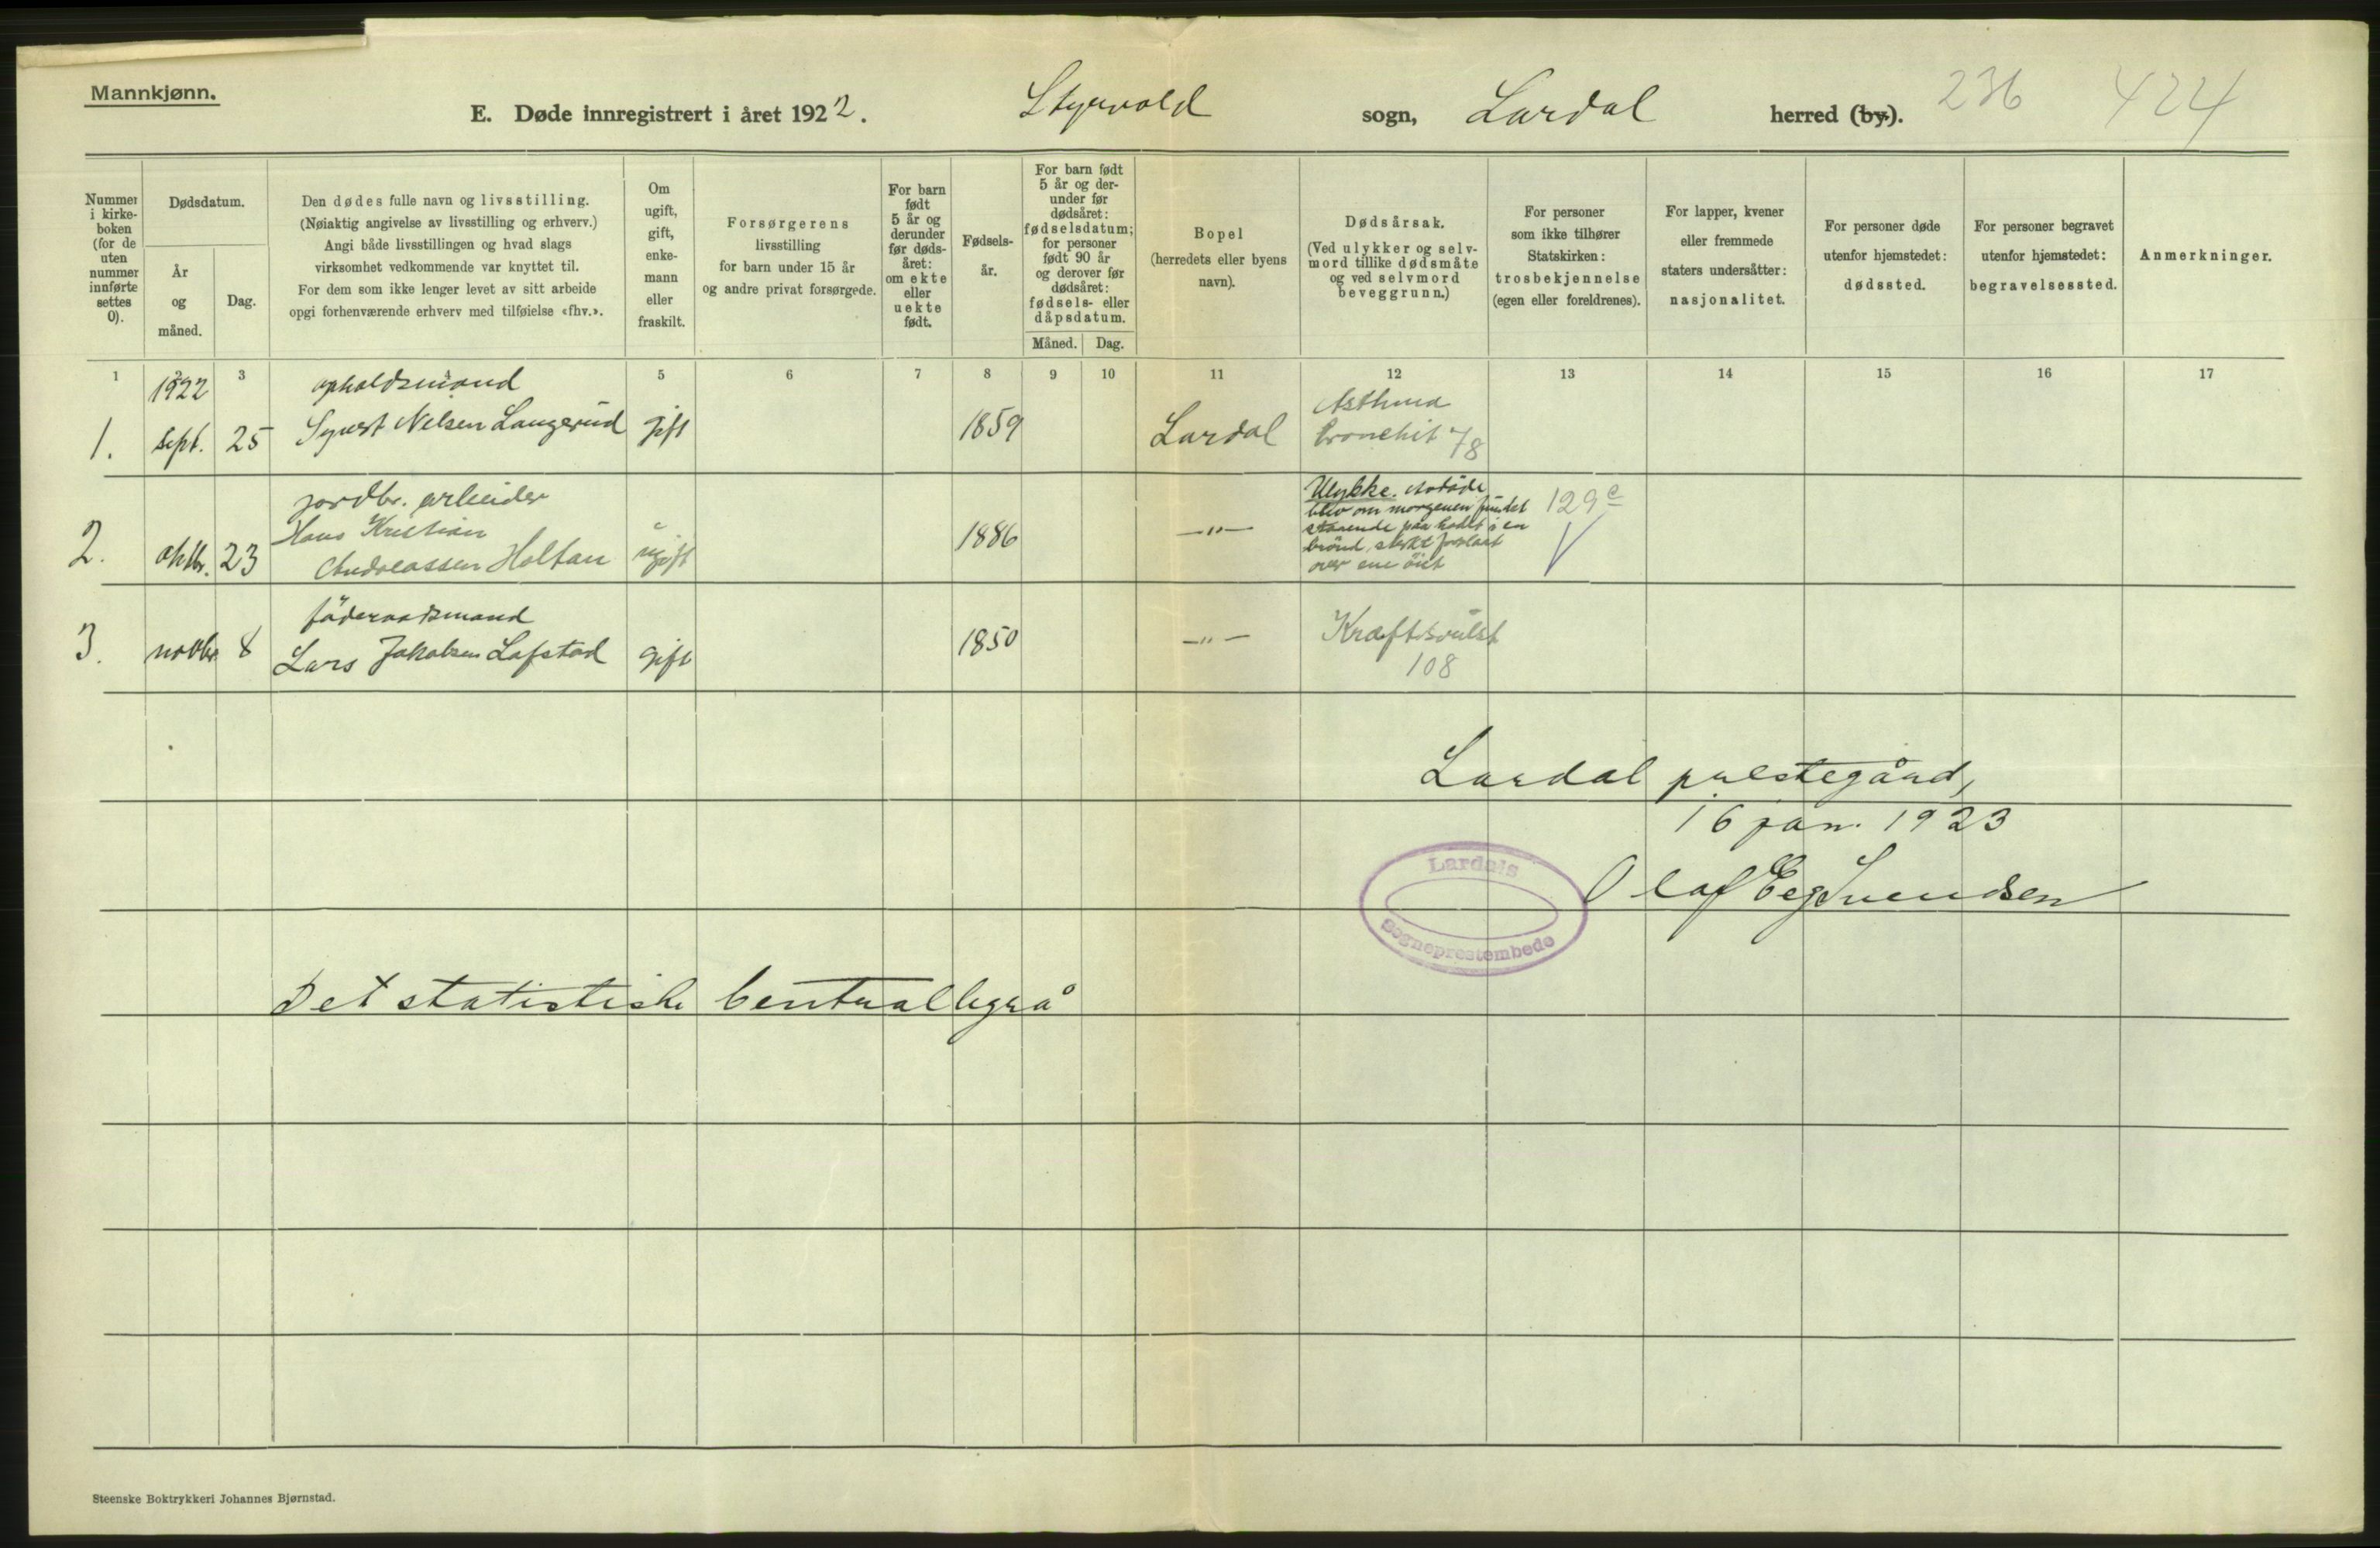 Mannkjønn.
E. Døde innregistrert i året 1922. Styrvold sogn, Lardal herred (by). 236 424
Nummer
i kirke-
boken
(for de
uten
nummer
innførte
settes
0).
Dødsdatum.
År
og
måned.
Dag.
Den dødes fulle navn og livsstilling.
(Nøiaktig angivelse av livsstilling og erhverv.)
Angi både livsstillingen og hvad slags
virksomhet vedkommende var knyttet til.
For dem som ikke lenger levet av sitt arbeide
opgi forhenværende erhverv med tilføielse «fhv.».
Om
ugift,
gift,
enke-
mann
eller
fraskilt.
Forsørgerens
livsstilling
for barn under 15 år
og andre privat forsørgede.
For barn
født
5 år og
derunder
før døds-
året:
om ekte
eller
uekte
født.
Fødsels-
år.
For barn født
5 år og der-
under før
dødsåret:
fødselsdatum;
for personer
født 90 år
og derover før
dødsåret:
fødsels- eller
dåpsdatum.
Måned. Dag.
Bopel
(herredets eller byens
navn).
Dødsårsak.
(Ved ulykker og selv-
mord tillike dødsmåte
og ved selvmord
beveggrunn.)
For personer
som ikke tilhører
Statskirken:
trosbekjennelse
(egen eller foreldrenes).
For lapper, kvener
eller fremmede
staters undersåtter:
nasjonalitet.
For personer døde
utenfor hjemstedet:
dødssted.
For personer begravet
utenfor hjemstedet:
begravelsessted.
Anmerkninger.
1 2 3 4 5 6 7 8 9 10 11 12 13 14 15 16 17
1922 opholdsmand Asthma
1. sept. 25 Syvert Nelsen Langerud gift 1859 Lardal bronchit 78
jordbr. arbeider
Hans Kristian
2. oktbr. 23 Andreassen Holtan ugift 1886 —"—
Ulykke. Avdöde
blev om morgenen fundet
staaende paa hodet i en
brönd, sterkt forslaat
over ene öiet
129c
föderaadsmand
3. novbr. 8 Lars Jakobsen Lofstad gift 1850 —"— Kræftsvulst
108
Lardal prestegård,
16 jan. 1923
Olaf Eeg Svendsen
Lardals
Sogneprestembede
Det statistiske Centralbyrå
Steenske Boktrykkeri Johannes Bjørnstad.